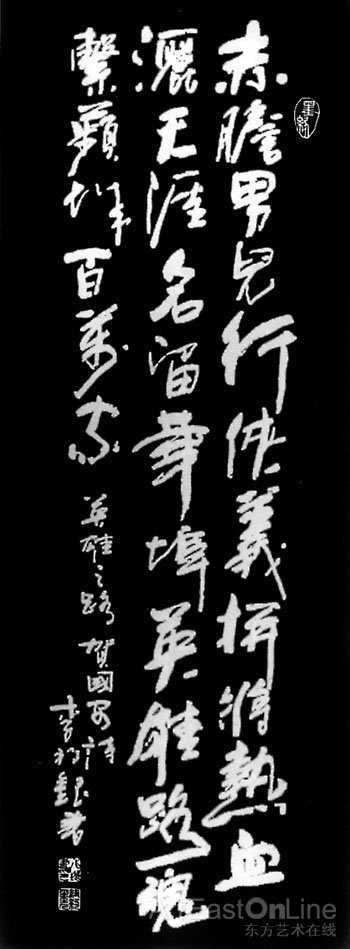 赤膽男兒行俠義拼將熱血
灑天涯名留華埠英雄路魂
繫蘋百萬家
英雄之路 賀國詩
李書
EastOnLine
东方艺术在线